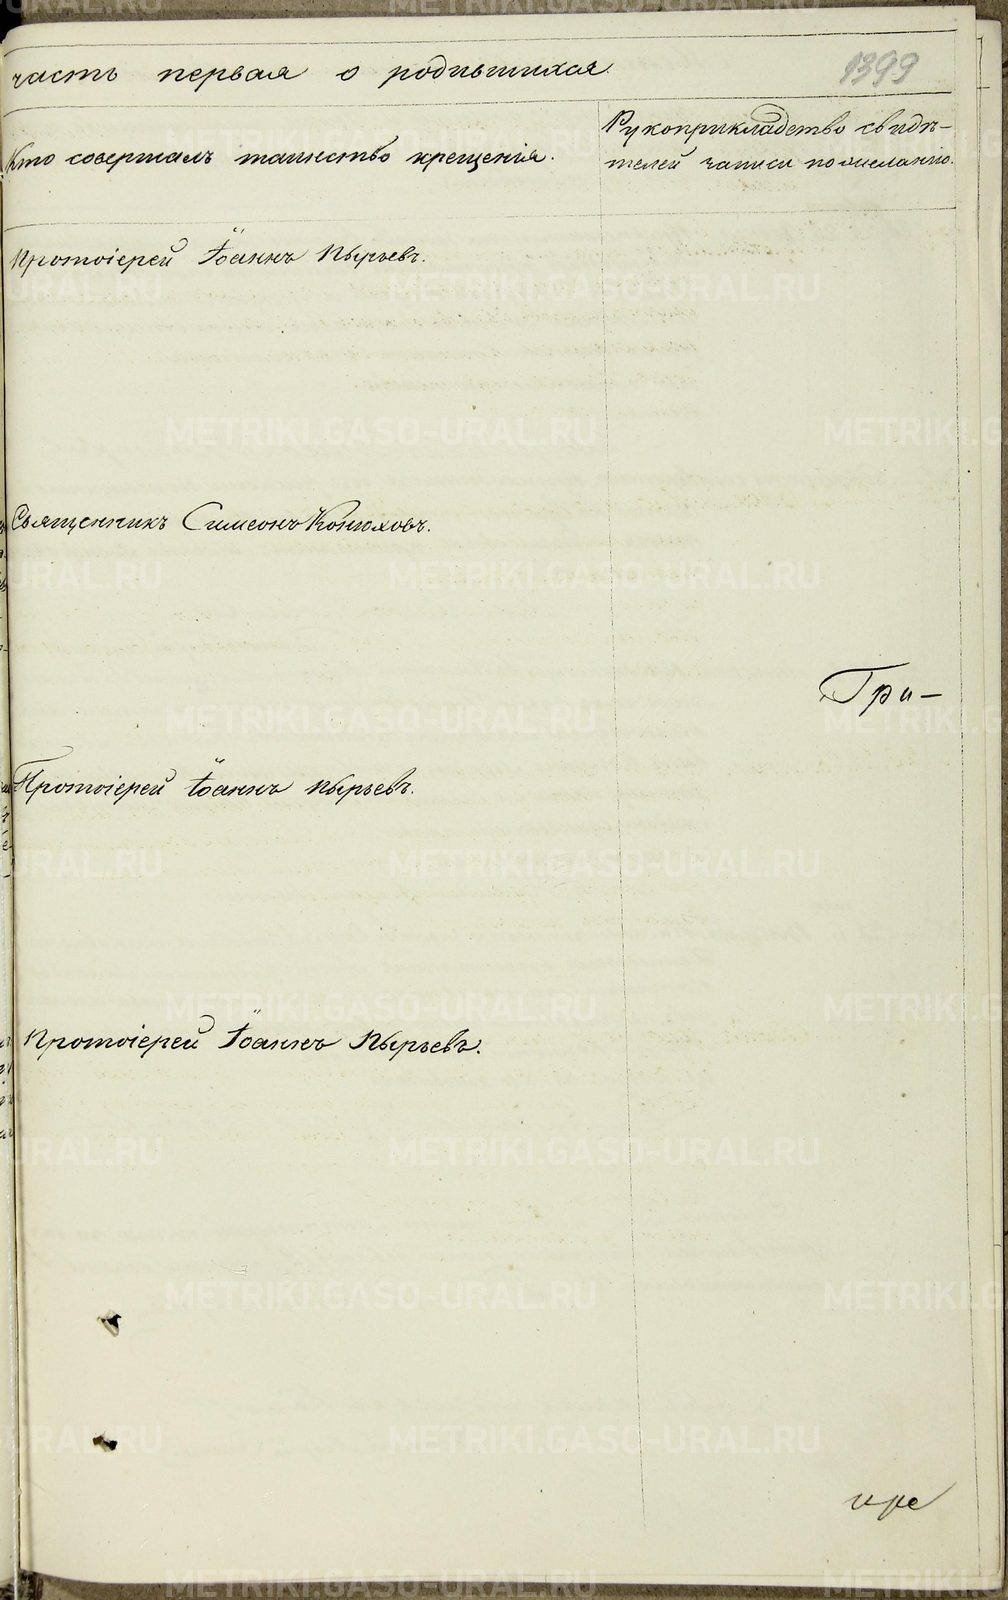 часть первая о родившихся
1399
Кто совершалъ таинство крещенія.
Рукоприкладство свидѣ-
телей записи по желанію.
Протоіерей Іоаннъ Пырьевъ.
Священникъ Симеонъ Конюховъ.
Гри-
Протоіерей Іоаннъ Пырьевъ.
Протоіерей Іоаннъ Пырьевъ.
METRIKI.GASO-URAL.RU